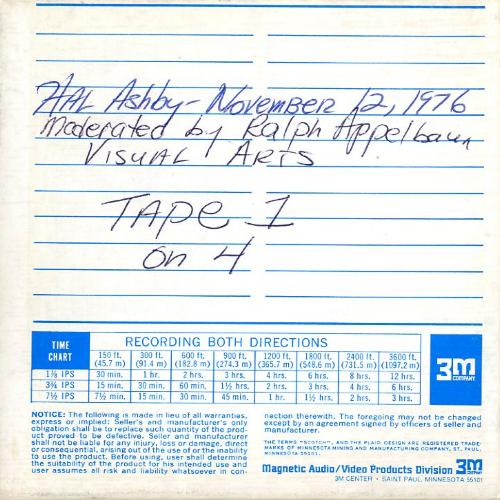 HAL Ashby - November 12, 1976
Moderated by Ralph Appelbaum
Visual Arts
TAPE 1
on 4
TIME CHART
RECORDING BOTH DIRECTIONS
150 ft. (45.7 m) 300 ft. (91.4 m) 600 ft. (182.8 m) 900 ft. (274.3 m) 1200 ft. (365.7 m) 1800 ft. (548.6 m) 2400 ft. (731.5 m) 3600 ft. (1097.2 m)
1⅞ IPS 30 min. 1 hr. 2 hrs. 3 hrs. 4 hrs. 6 hrs. 8 hrs. 12 hrs.
3¾ IPS 15 min. 30 min. 60 min. 1½ hrs. 2 hrs. 3 hrs. 4 hrs. 6 hrs.
7½ IPS 7½ min. 15 min. 30 min. 45 min. 1 hr. 1½ hrs. 2 hrs. 3 hrs.
3M COMPANY
NOTICE: The following is made in lieu of all warranties,
express or implied: Seller's and manufacturer's only
obligation shall be to replace such quantity of the prod-
uct proved to be defective. Seller and manufacturer
shall not be liable for any injury, loss or damage, direct
or consequential, arising out of the use of or the inability
to use the product. Before using, user shall determine
the suitability of the product for his intended use and
user assumes all risk and liability whatsoever in con-
nection therewith. The foregoing may not be changed
except by an agreement signed by officers of seller and
manufacturer.
THE TERMS "SCOTCH", AND THE PLAID DESIGN ARE REGISTERED TRADE-
MARKS OF MINNESOTA MINING AND MANUFACTURING COMPANY, ST. PAUL,
MINNESOTA 55101.
Magnetic Audio/Video Products Division 3M COMPANY
3M CENTER • SAINT PAUL, MINNESOTA 55101